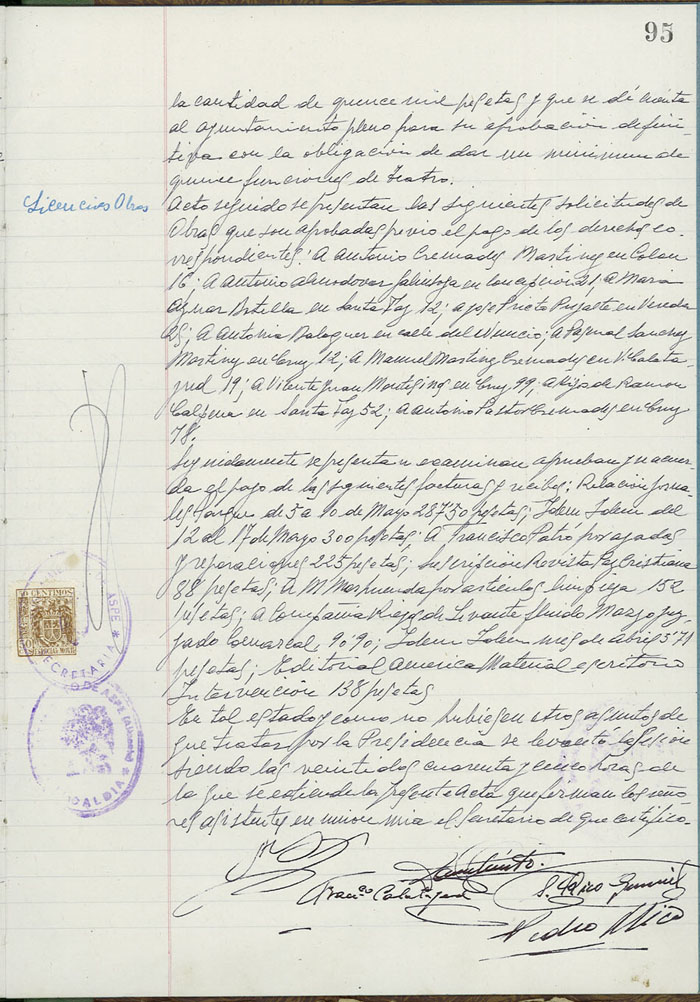 95
la cantidad de quince mil pesetas y que se dé cuenta
al ayuntamiento pleno para su aprobación defini-
tiva con la obligación de dar un minimun de
quince funciones de teatro.
Licencias Obras
Acto seguido se presentan las siguientes solicitudes de
Obras que son aprobadas previo el pago de los derechos co-
rrespondientes: A Antonio Cremades Martinez en Colon
16; A Antonio Almodovar en Concepción 21; A Maria
Aznar Botella en Santa Faz 12; a Jose Prieto en Vereda
25; A Antonia Balaguer en calle del; A Pascual Sanchez
Martinez en Cruz 12; A Manuel Martinez Cremades en V. Calata-
yud 19; A Vicente Juan en Cruz 99; A Hijo de Ramon
Calpena en Santa Faz 52; A Antonio Pastor Cremades en Cruz
78.
Seguidamente se presentan examinan aprueban y se acuer-
da el pago de las siguientes facturas y recibos: Relación jorna-
les de 5 a 10 de Mayo 287'50 pesetas; Idem Idem del
12 al 17 de Mayo 300 pesetas; A Francisco por
y reparaciones 225 pesetas; Suscripción Revista Cristiana
88 pesetas; a por articulos limpieza 152
pesetas; A Compañia Riegos de Levante fluido Mayo juz-
gado Comarcal 90'90; Idem Idem mes de abril 571
pesetas; Editorial America Material escritorio
Intervención 138 pesetas
En tal estado y como no hubiesen otros asuntos de
que tratar por la Presidencia se levanta la sesión
siendo las veintidos cuarenta y cinco horas de
la que se extiende la presente Acta que firman los seño-
res asistentes en union mia el Secretario de que certifico.
CENTIMOS
ESPECIAL MOVIL
SECRETARIA
ASPE
DE ASPE (Alicante)
ALCALDIA
Franco Calatayud
Pedro Mico